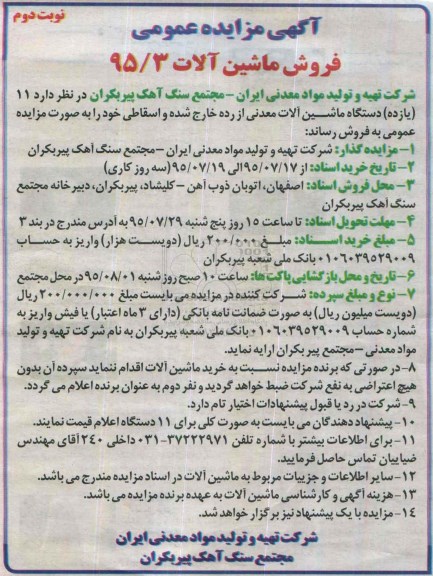 نوبت دوم
آگهی مزایده عمومی
فروش ماشین آلات ۹۵/۳
شرکت تهیه و تولید مواد معدنی ایران -مجتمع سنگ آهک پیربکران در نظر دارد ۱۱
(یازده) دستگاه ماشین آلات معدنی از رده خارج شده و اسقاطی خود را به صورت مزایده
عمومی به فروش رساند:
۱- مزایده گذار: شرکت تهیه و تولید مواد معدنی ایران -مجتمع سنگ آهک پیربکران
۲- تاریخ خرید اسناد: از ۹۵/۰۷/۱۷ الی ۹۵/۰۷/۱۹ (سه روز کاری)
۳- محل فروش اسناد: اصفهان، اتوبان ذوب آهن - کلیشاد، پیربکران، دبیرخانه مجتمع
سنگ آهک پیربکران
۴- مهلت تحویل اسناد: تا ساعت ۱۵ روز پنج شنبه ۹۵/۰۷/۲۹ به آدرس مندرج در بند ۳
۵- مبلغ خرید اسناد: مبلغ ۲۰۰/۰۰۰ ریال (دویست هزار) واریز به حساب
۰۱۰۶۰۳۹۵۲۹۰۰۹ بانک ملی شعبه پیربکران
۶- تاریخ و محل بازگشایی پاکت ها: ساعت ۱۰ صبح روز شنبه ۹۵/۰۸/۰۱ در محل مجتمع
۷- نوع و مبلغ سپرده: شرکت کننده در مزایده می بایست مبلغ ۲۰۰/۰۰۰/۰۰۰ ریال
(دویست میلیون ریال) به صورت ضمانت نامه بانکی (دارای ۳ ماه اعتبار) یا فیش واریز به
شماره حساب ۰۱۰۶۰۳۹۵۲۹۰۰۹ بانک ملی شعبه پیربکران به نام شرکت تهیه و تولید
مواد معدنی -مجتمع پیربکران ارایه نماید.
۸- در صورتی که برنده مزایده نسبت به خرید ماشین آلات اقدام ننماید سپرده آن بدون
هیچ اعتراضی به نفع شرکت ضبط خواهد گردید و نفر دوم به عنوان برنده اعلام می گردد.
۹- شرکت در رد یا قبول پیشنهادات اختیار تام دارد.
۱۰- پیشنهاد دهندگان می بایست به صورت کلی برای ۱۱ دستگاه اعلام قیمت نمایند.
۱۱- برای اطلاعات بیشتر با شماره تلفن ۳۷۲۲۲۹۷۱-۰۳۱ داخلی ۲۴۰ آقای مهندس
ضیاییان تماس حاصل فرمایید.
۱۲- سایر اطلاعات و جزییات مربوط به ماشین آلات در اسناد مزایده مندرج می باشد.
۱۳- هزینه آگهی و کارشناسی ماشین آلات به عهده برنده مزایده می باشد.
۱۴- مزایده با یک پیشنهاد نیز برگزار خواهد شد.
شرکت تهیه و تولید مواد معدنی ایران
مجتمع سنگ آهک پیربکران